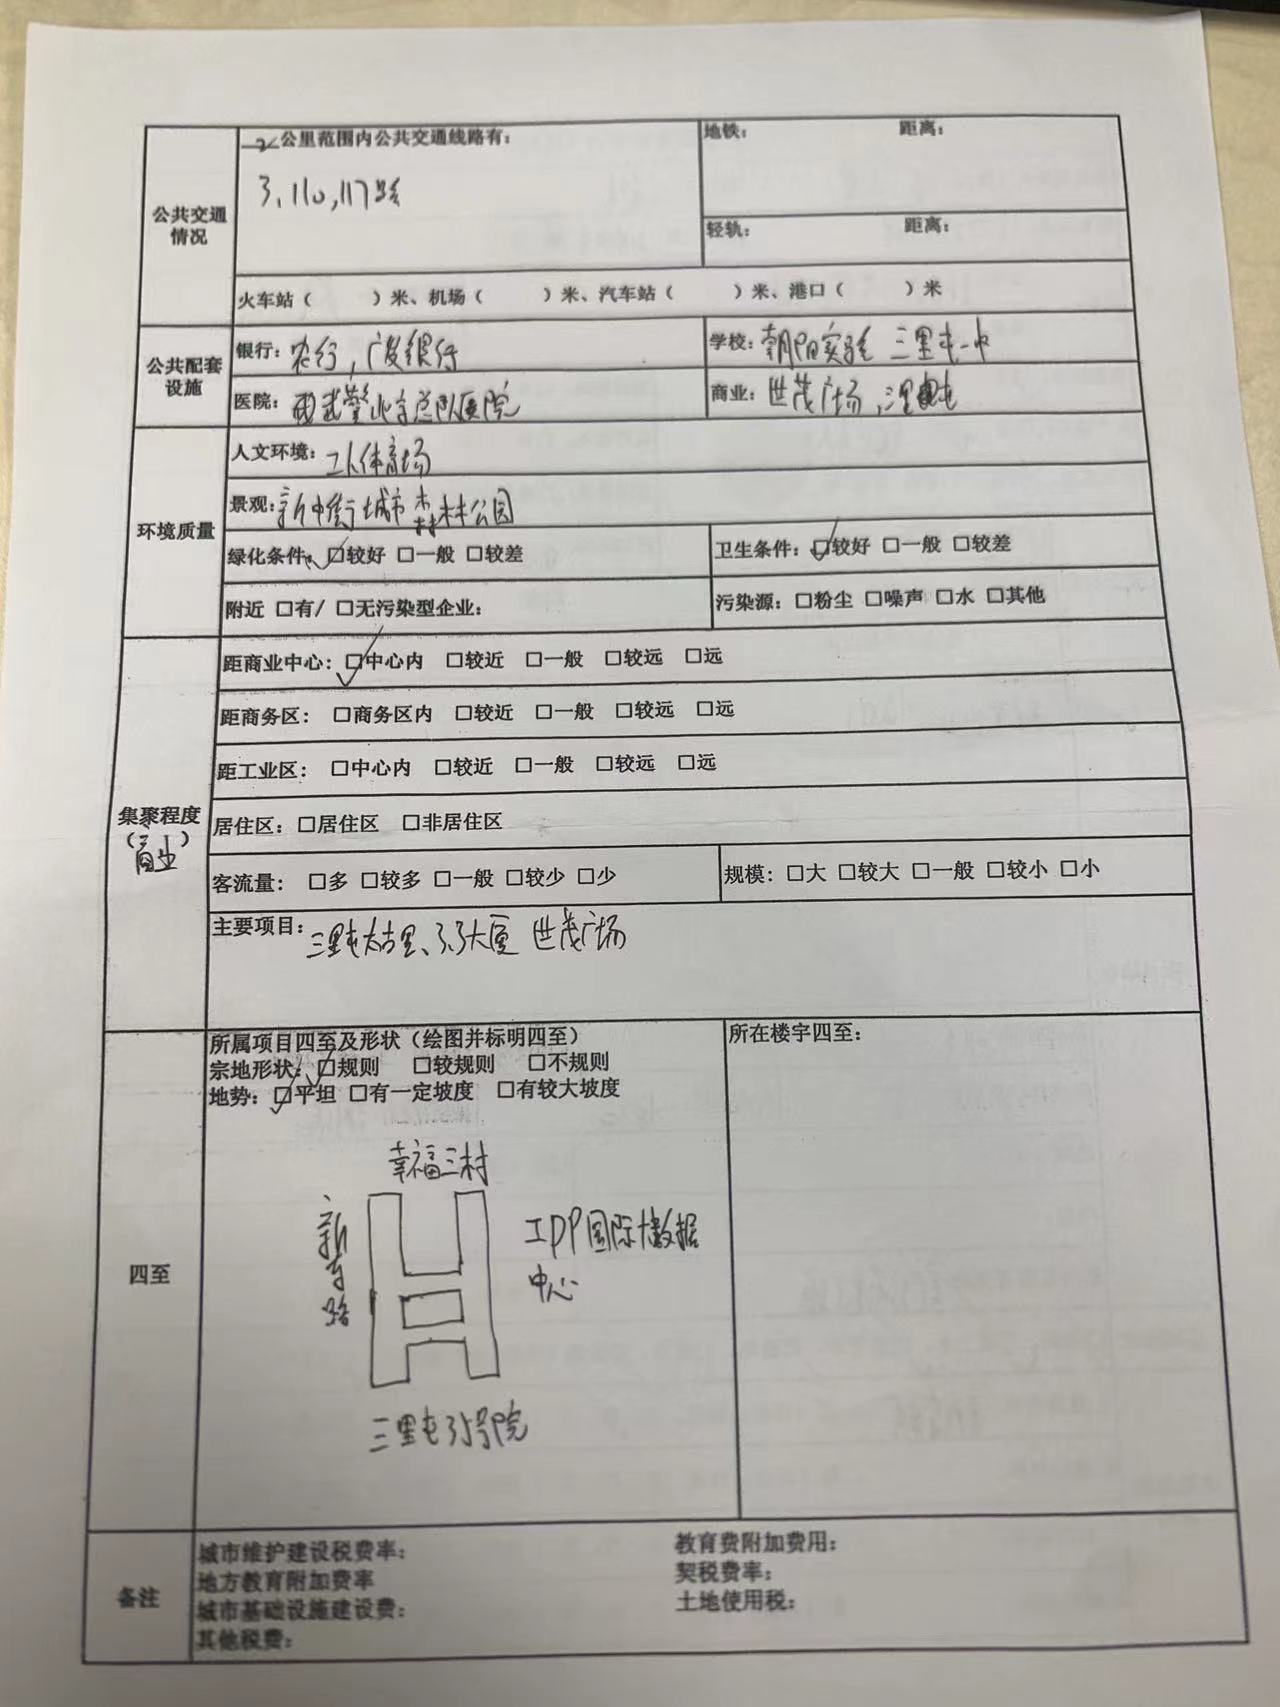 公共交通情况
2公里范围内公共交通线路有:
3、110,117路
地铁: 距离:
轻轨: 距离:
火车站( )米、机场( )米、汽车站( )米、港口( )米
公共配套设施
银行: 农行,广发银行
学校: 朝阳实验 三里屯一中
医院: 武警北京总队医院
商业: 世茂广场,三里屯
环境质量
人文环境: 工人体育场
景观: 新中街城市森林公园
绿化条件: ☑较好 □一般 □较差
卫生条件: ☑较好 □一般 □较差
附近 □有/ □无污染型企业:
污染源: □粉尘 □噪声 □水 □其他
集聚程度
(商业)
距商业中心: ☑中心内 □较近 □一般 □较远 □远
距商务区: □商务区内 □较近 □一般 □较远 □远
距工业区: □中心内 □较近 □一般 □较远 □远
居住区: □居住区 □非居住区
客流量: □多 □较多 □一般 □较少 □少
规模: □大 □较大 □一般 □较小 □小
主要项目: 三里屯太古里、3.3大厦 世茂广场
四至
所属项目四至及形状(绘图并标明四至)
宗地形状: ☑规则 □较规则 □不规则
地势: ☑平坦 □有一定坡度 □有较大坡度
所在楼宇四至:
幸福三村
新东路
IDP国际大数据
中心
三里屯35号院
备注
城市维护建设税费率:
教育费附加费用:
地方教育附加费率
契税费率:
城市基础设施建设费:
土地使用税:
其他税费: